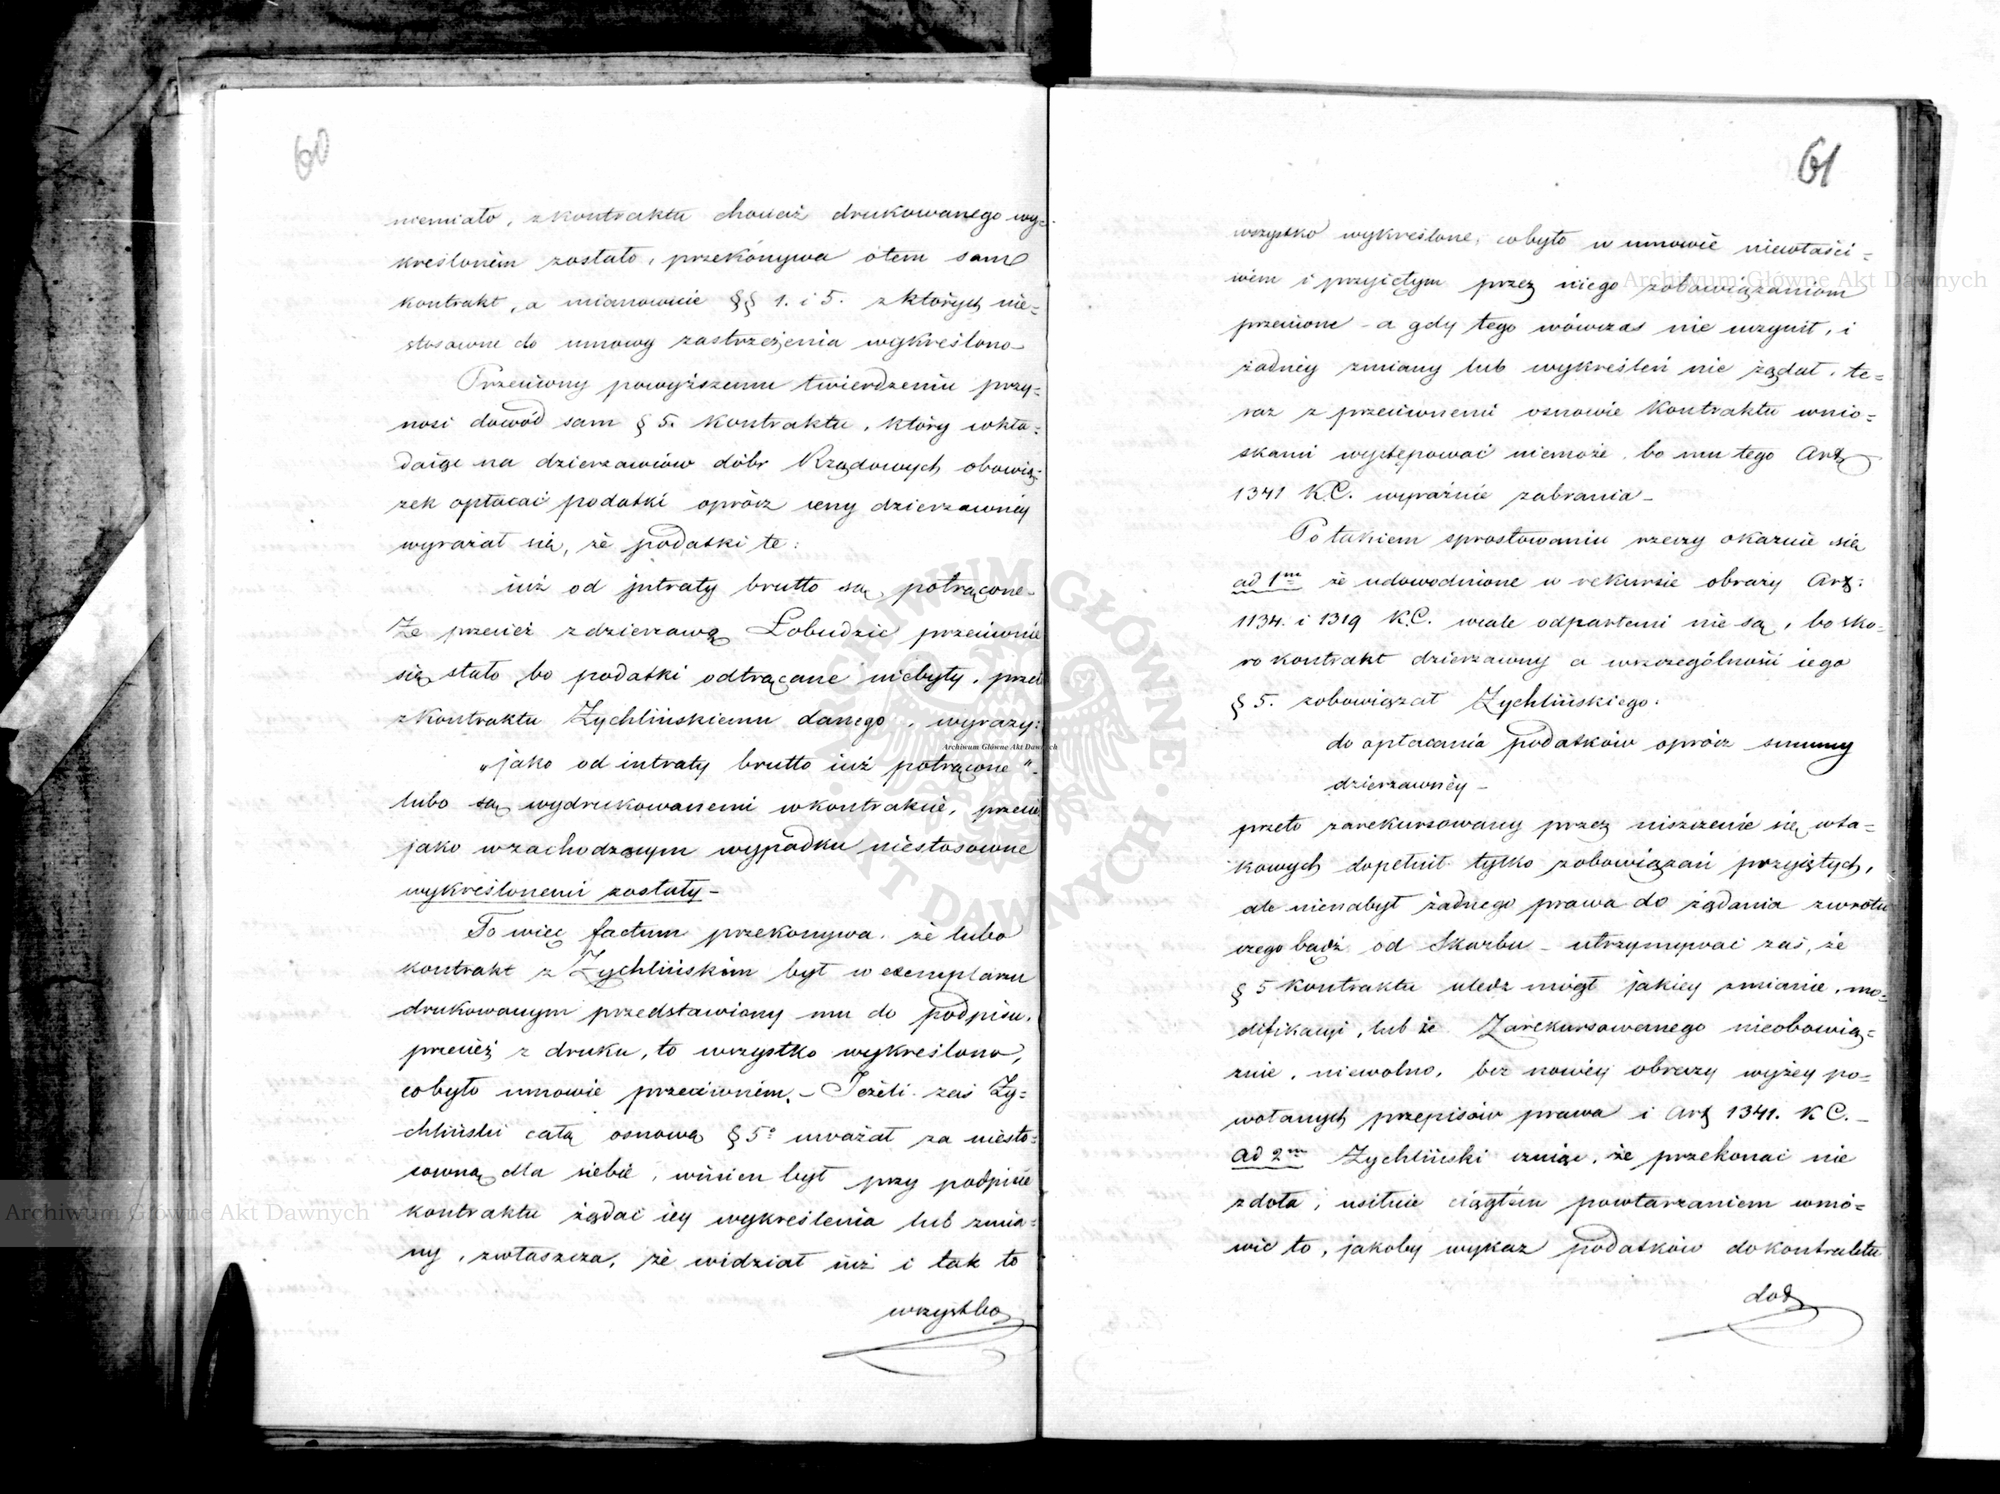 60
niemiało, z kontraktu chociaż drukowanego wy=
kreślonem zostało, przekonywa o tem sam
kontrakt, a mianowicie §§ 1. i 5. z których nie=
stosowne do umowy zastrzeżenia wykreślono
Przeciwny powyższemu twierdzeniu przy=
nosi dowód sam § 5. Kontraktu, który wkła=
daiąc na dzierzawców dóbr Rządowych obowią=
zek opłacać podatki oprócz ceny dzierzawnéy
wyrażał się, że podatki te:
iuż od intraty brutto są potrącone_
Że przecież z dzierzawą Łobudzic przeciwnie
się stało, bo podatki odtrącane niebyły, prze
z Kontraktu Żychlińskiemu danego, wyrazy:
„jako od intraty brutto iuż potrącone"_
lubo są wydrukowanemi w kontrakcie, przeci
jako w zachodzącym wypadku niestosowne
wykreślonemi zostały_
To więc factum przekonywa, że lubo
kontrakt z Żychlińskim był w exemplarzu
drukowanym przedstawiony mu do podpisu,
przecież z druku, to wszystko wykreślono,
co było umowie przeciwném._ Jeżeli zaś Ży=
chliński całą osnowę § 5o uważał za niesto=
sowną dla siebie, winien był przy podpisie
kontraktu żądać iey wykreślenia lub zmia=
ny, zwłaszcza, że widział iuż i tak to
wszystko
61
wszystko wykreślone, co było w umowie niewłaści=
wém i przyiętym przez niego zobowiązaniom
przeciwne _ a gdy tego wówczas nie uczynił, i
żadnéy zmiany lub wykreśleń nie żądał, te=
raz z przeciwnemi osnowie Kontraktu wnio=
skami występować niemoże, bo mu tego Art
1341 K.C. wyraźnie zabrania_
Po takiem sprostowaniu rzeczy okazuie się
ad 1me że udowodnione w rekursie obrazy Art:
1134. i 1319 K.C. wcale odpartemi nie są, bo sko=
ro kontrakt dzierzawny a w szczególności iego
§ 5. zobowiązał Żychlińskiego:
do opłacania podatków oprócz summy
dzierzawnéy_
przeto zarekursowany przez niszczenie się wta=
kowych dopełnił tylko zobowiązań przyiętych,
ale nienabył żadnego prawa do żądania zwrotu
czego bądź od Skarbu _ utrzymywać zaś, że
§ 5 Kontraktu uledz mógł jakiey zmianie, mo=
difikacyi, lub że Zarekursowanego nieobowią=
zuie, niewolno, bez nowéy obrazy wyżey po=
wołanych przepisów prawa i Art 1341. K C._
ad 2me Żychliński czuiąc, że przekonać nie
zdoła, usiłuie ciągłém powtarzaniem wmó=
wić to, jakoby wykaz podatków do kontraktu
dod
Archiwum Główne Akt Dawnych
Archiwum Główne Akt Dawnych
Archiwum Główne Akt Dawnych
ARCHIWUM GŁÓWNE AKT DAWNYCH